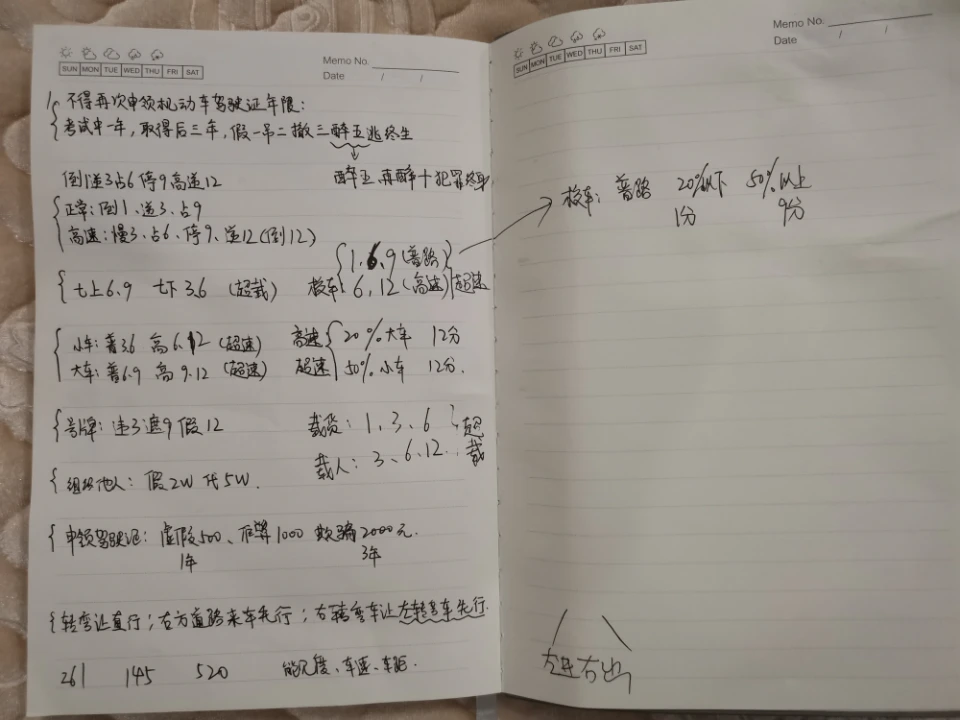 SUN MON TUE WED THU FRI SAT
Memo No.
Date / /
1 不得再次申领机动车驾驶证年限:
考试中一年, 取得后三年, 假一吊二撤三醉五逃终生
醉五、再醉十犯罪终身
倒1逆3占6停9高速12
正常: 倒1、逆3、占9
高速: 慢3、占6、停9、逆12(倒12)
校车 1、6、9 (普路)
6、12 (高速) 超速
七上6.9 七下3.6 (超载)
小车: 普3.6 高6.12 (超速)
大车: 普6.9 高9.12 (超速)
高速超速 20% 大车 12分
50% 小车 12分.
号牌: 违3遮9假12
载货: 1、3、6
载人: 3、6、12. 超载
组织他人: 假2W 代5W.
申领驾驶证: 虚假500、作弊1000 欺骗2000元.
1年 3年
转弯让直行; 右方道路来车先行; 右转弯车让左转弯车先行.
261 145 520 能见度、车速、车距.
SUN MON TUE WED THU FRI SAT
Memo No.
Date / /
校车: 普路 20%以下 50%以上
1分 9分
左进右出